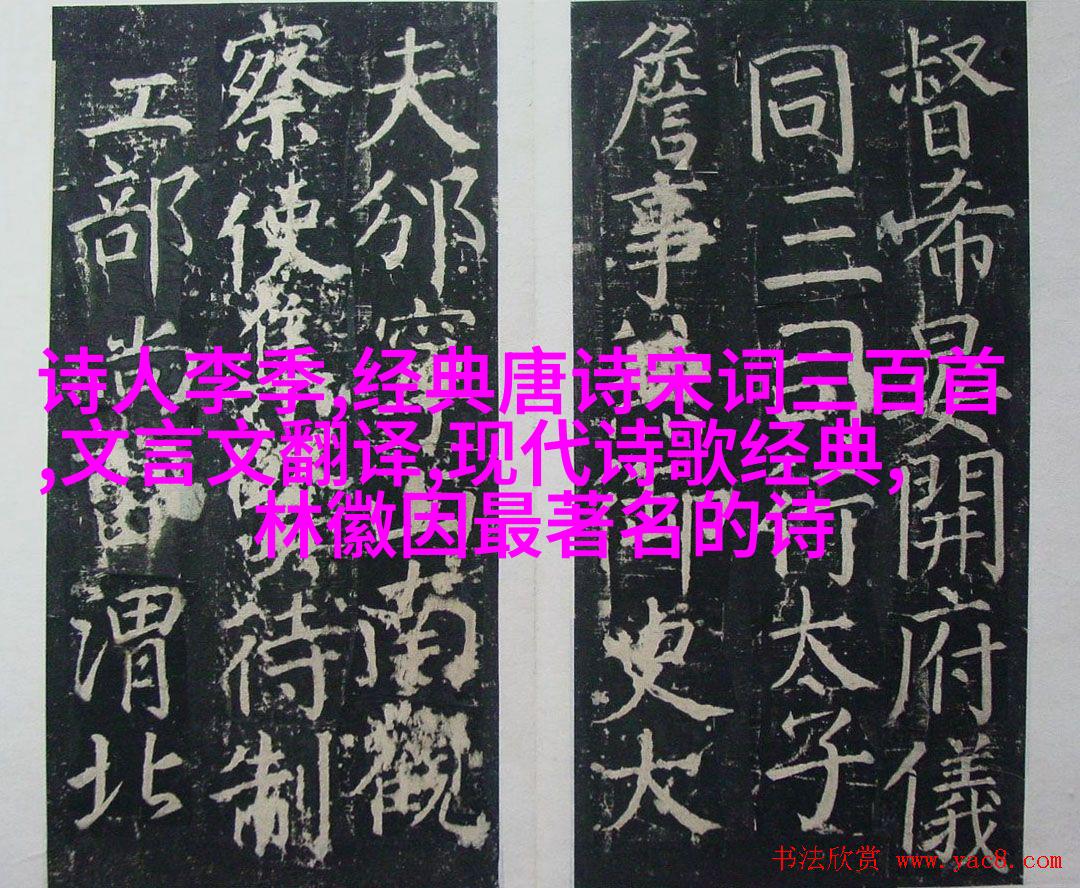 督希晏開府儀
同三司行太子
詹事史大
夫邠寧南觀
察使待制
工部尚渭北
诗人李季,经典唐诗宋词三百首
,文言文翻译,现代诗歌经典,
林徽因最著名的诗
书法欣赏 www.yac8.com